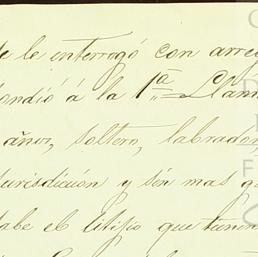 se le interrogó con arreg
ondió á la 1ª Llam
años, soltero, labrador,
Jurisdicción y sin mas g
sabe el litijio que tienen